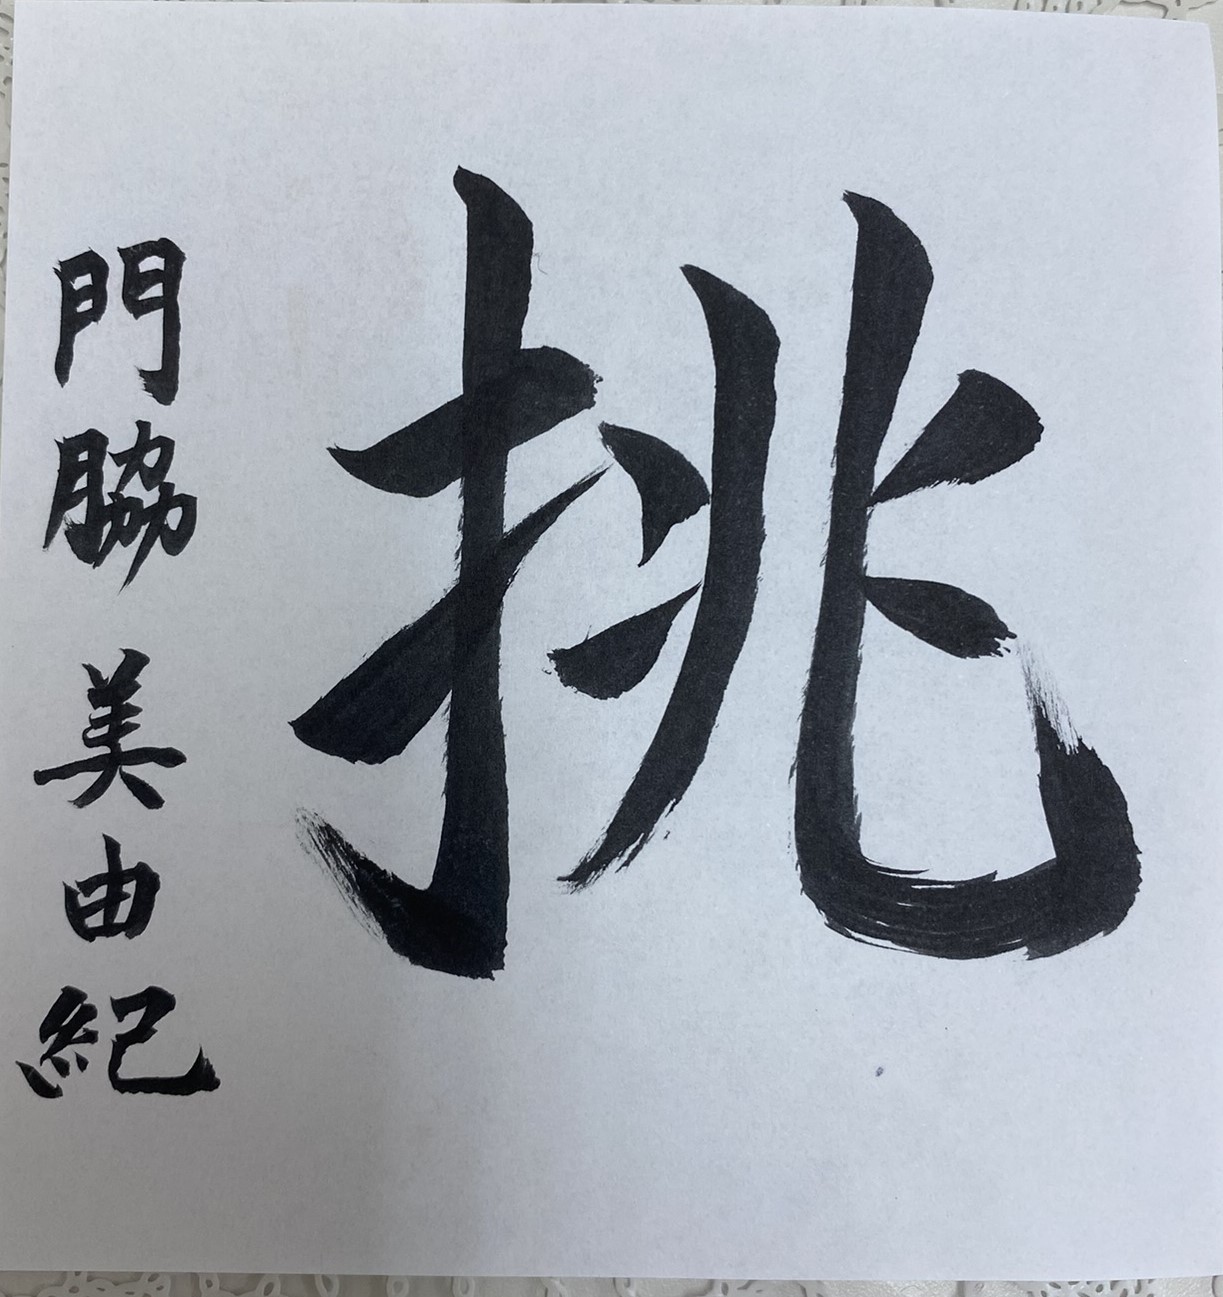 挑
門脇美由紀